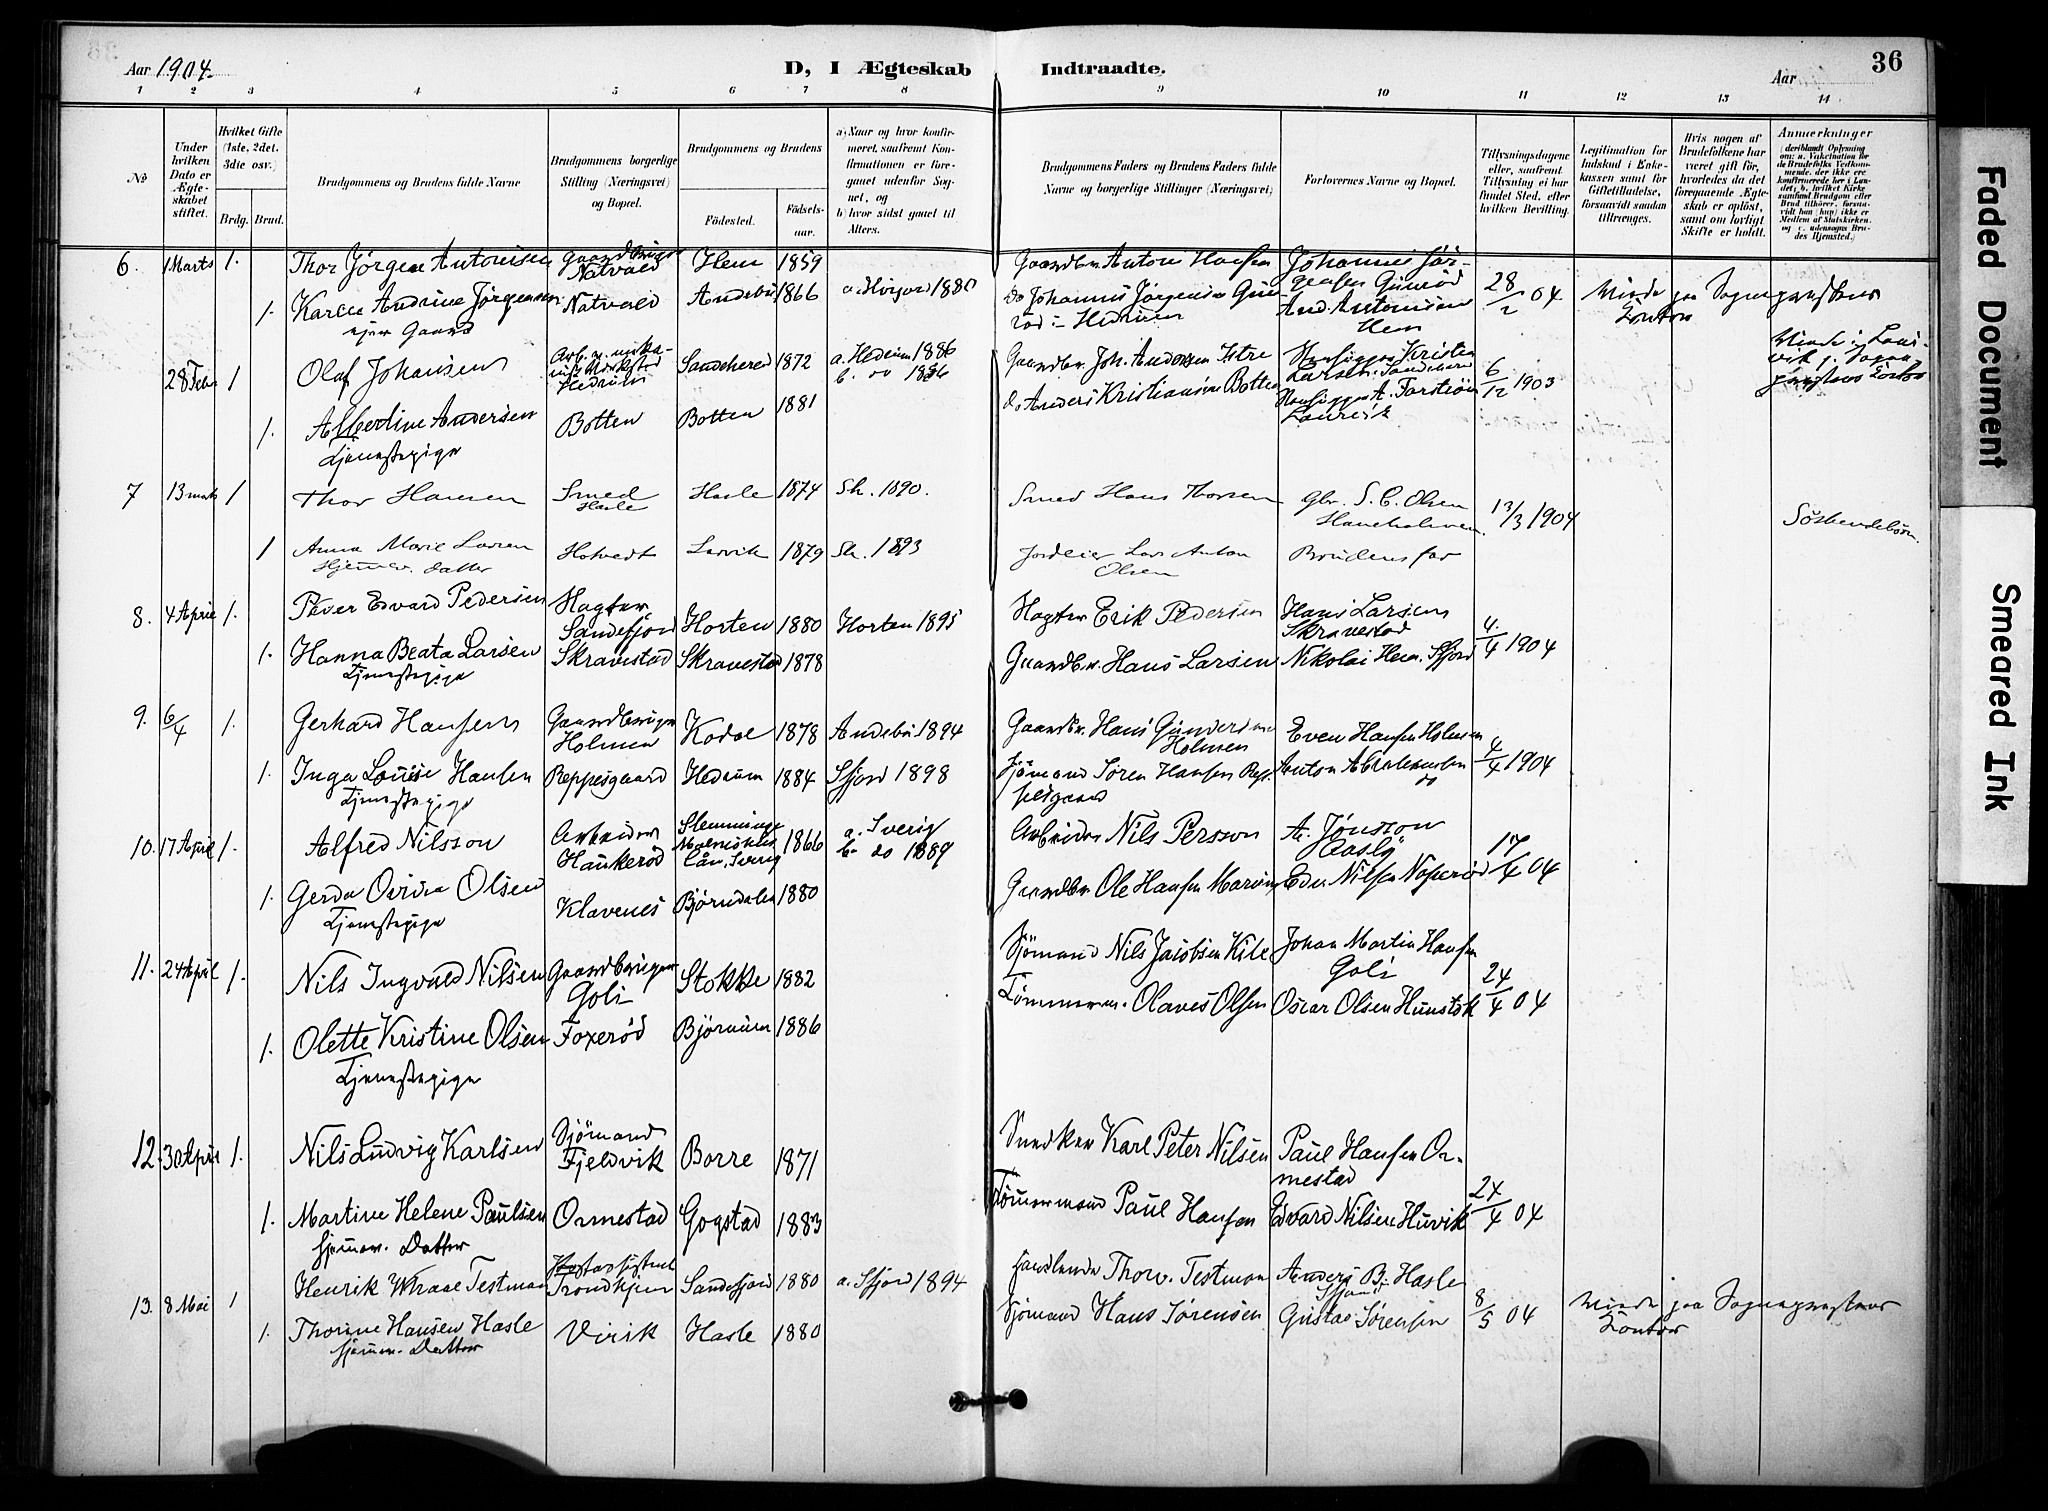 Aar 1904.
D, I Ægteskab Indtraadte.
Aar
36
1 2 3 4 5 6 7 8 9 10 11 12 13 14
No
Under hvilken Dato er Ægteskabet stiftet.
Hvilket Gifte (1ste, 2det, 3die osv.)
Brdg. Brud.
Brudgommens og Brudens fulde Navne
Brudgommens borgerlige Stilling (Næringsvei) og Bopæl.
Brudgommens og Brudens
Fødested.
Fødselsaar.
a) Naar og hvor konfirmeret, saafremt Konfirmationen er foregaaet udenfor Sognet, og
b) hvor sidst gaaet til Alters.
Brudgommens Faders og Brudens Faders fulde Navne og borgerlige Stillinger (Næringsvei)
Forlovernes Navne og Bopæl.
Tillysningsdagene eller, saafremt Tillysning ei har fundet Sted, efter hvilken Bevilling.
Legitimation for Indskud i Enkekassen samt for Giftetilladelse, forsaavidt saadan tiltrænges.
Hvis nogen af Brudefolkene har været gift før, hvorledes da det foregaaende Ægteskab er opløst, samt om lovligt Skifte er holdt.
Anmerkninger (deriblandt Oplysning om: a. Vakcination for de Brudefolks Vedkommende, der ikke ere konfirmerede her i Landet; b. hvilket Kirkesamfund Brudgom eller Brud tilhører, forsaavidt han (hun) ikke er Medlem af Statskirken, og c. udensogns Brudes Hjemsted.)
6. 1 Marts 1. Thor Jørgen Antonisen Gaardbruger Natvald Hem 1859 Gaardbr. Antoni Hansen Johannes Jørgensen Gunrød 28/2 04
1. Karen Andrine Jørgensen Natvald Andebu 1866 do Johannes Jørgensen And. Antonisen Hem
28 Febr 1 Olaf Johansen Hedrum Sandeherred 1872 a. Hedrum 1886 b. do 1886 Gaardbr. Joh. Andersen Istre Kristen Larsen 6/12 1903
1. Albertine Andersen Botten Botten 1881 do Anders Kristiansen Botten Laurvik
Tjenestepige
7 13 marts 1 Thor Hansen Smed Hasle Hasle 1874 Sh. 1890. Smed Hans Thorsen Gbr. S. C. Olsen 13/3 1904 Søskendebørn
1 Anna Marie Larsen Hotvedt Larvik 1879 Sh. 1893 Jordeier Lars Anton Olsen Brudens far
Hjemmev. datter
8. 4 April 1. Peder Edvard Pedersen Sandefjord Horten 1880 Horten 1895 Erik Pedersen Hans Larsen Skravestad 4/4 1904
1. Hanna Beata Larsen Skravestad Skravestad 1878 Gaardbr. Hans Larsen Nikolai Hem. Sfjord
Tjenestepige
9. 6/4 1. Gerhard Hansen Gaardbruger Holmen Kodal 1878 Andebu 1894 Gaardbr. Hans Gundersen Holmen Even Hansen Holmen 4/4 1904
1. Inga Louise Hansen Reppesgaard Hedrum 1884 Sfjord 1898 Sjømand Søren Hansen Reppesgaard Anton Abrahamsen do
Tjenestepige
10. 17 April 1. Alfred Nilsson Arbeider Haukerød 1866 a. Sverig b. do 1889 Arbeider Nils Persson A. Jónsson 17/4 04
1. Gerda Ovidia Olsen Klavenes Bjørndalen 1880 Gaardbr. Ole Hansen Nilsen
Tjenestepige
11. 24 April 1. Nils Ingvald Nilsen Gaardbruger Goli Stokke 1882 Sjømand Nils Jacobsen Kile Johan Martin Hansen Goli 24/4 04
1. Olette Kristine Olsen Foxerød Bjørnum 1886 Tømmerm. Olaves Olsen Oscar Olsen
Tjenestepige
12. 30 April 1. Nils Ludvig Karlsen Sjømand Fjeldvik Borre 1871 Snedker Karl Peter Nilsen Paul Hansen Ormestad 24/4 04
1. Martine Helene Paulsen Ormestad Gogstad 1883 Tømmermand Paul Hansen Edvard Nilsen Huvik
hjemmev. Datter
13. 8 Mai 1 Henrik Testman Trondhjem Sandefjord 1880 a. Sfjord 1894 Handlende Thorv. Testman Anders B. Hasle Sfjord 8/5 04
1. Thorine Hansen Hasle Virik Hasle 1880 Sjømand Hans Sørensen Gustav Sørensen
hjemmev. Datter
Faded Document
Smeared Ink